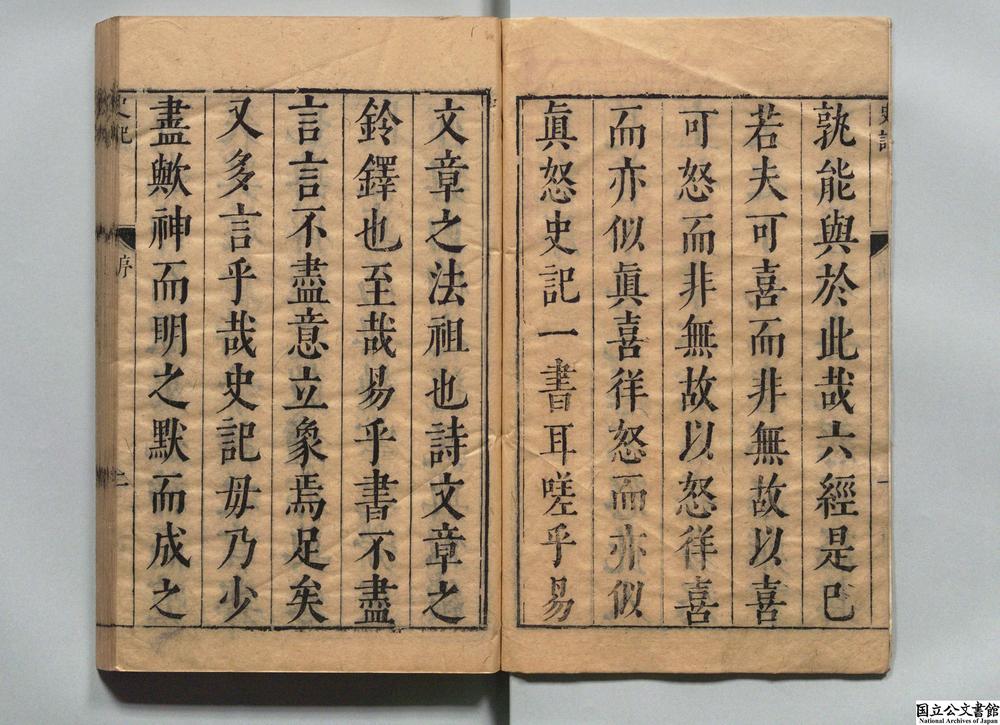 孰能與於此哉六經是已
若夫可喜而非無故以喜
可怒而非無故以怒徉喜
而亦似眞喜徉怒而亦似
眞怒史記一書耳嗟乎易
文章之法祖也詩文章之
鈴鐸也至哉易乎書不盡
言言不盡意立象焉足矣
又多言乎哉史記毋乃少
盡歟神而明之默而成之
史記
序
二
国立公文書館
National Archives of Japan